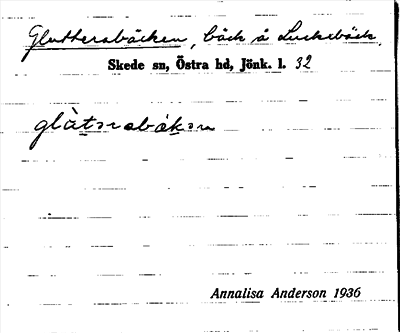 Glutterabäcken, bäck å Luckebäck.
Skede sn, Östra hd, Jönk. l. 32
Annalisa Anderson 1936